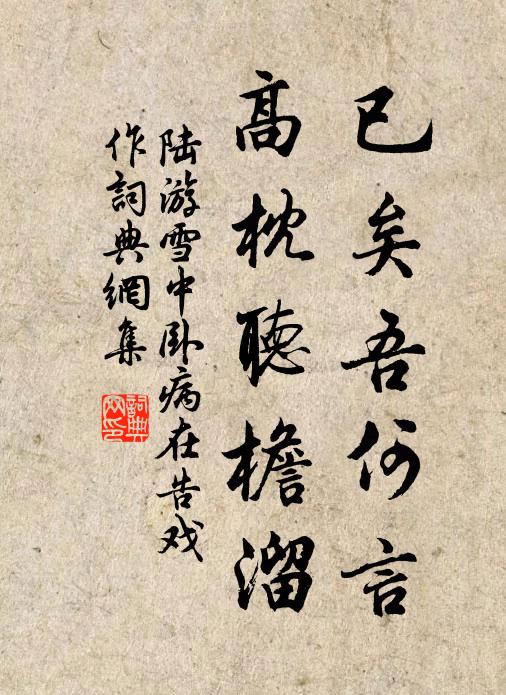 已矣吾何言
高枕聽檐溜
陆游雪中卧病在告戏
作詞典網集
詞典網印